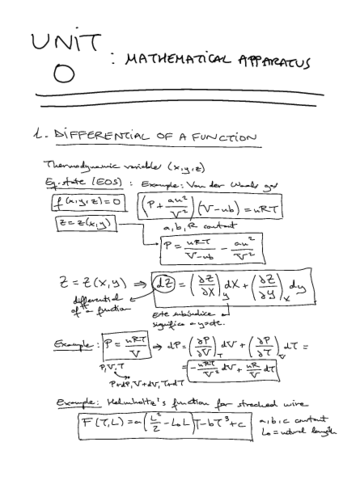 UNIT 0 : MATHEMATICAL APPARATUS
1. DIFFERENTIAL OF A FUNCTION
Thermodynamic variables (x,y,z)
Eq. state (EOS) : Example: Van der Waals gas
f(x,y,z)=0 (P + an²/V²)(V-nb) = nRT
z=z(x,y) a,b,R constant
P = nRT/(V-nb) - an²/V²
Z = Z(x,y) ⇒ dZ = (∂Z/∂X)_y dX + (∂Z/∂y)_x dy
differential of a function
Este subíndice significa y=cte.
Example: P = nRT/V ⇒ dP = (∂P/∂V)_T dV + (∂P/∂T)_V dT =
P,V,T = -nRT/V² dV + nR/V dT
P+dP, V+dV, T+dT
Example: Helmholtz's function for streched wire
F(T,L) = a(L²/2 - L₀L)T - bT³ + c a,b,c constant
L₀ = natural length